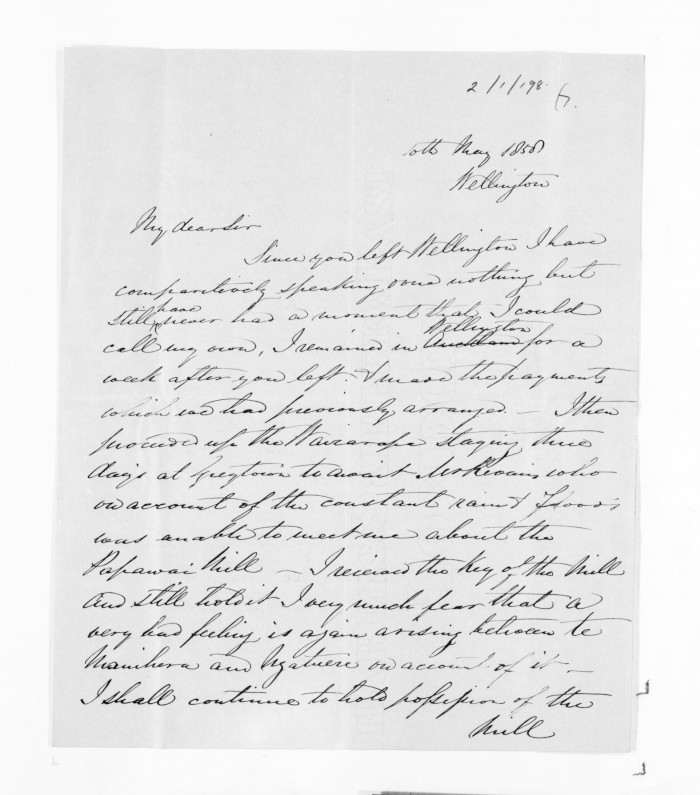 2/1/198
6.
10th May 1858
Wellington
My dear Sir
Since you left Wellington I have
comparitively speaking done nothing but
still have never had a moment that I could
call my own, I remained in Auckland Wellington for a
week after you left. & made the payments
which we had previously arranged – I then
proceeded up the Wairarapa staying three
days at Greytown to await Mr who
on account of the constant rain & floods
was unable to meet me about the
Papawai Mill – I received the Key of the Mill
and still hold it I very much fear that a
very bad feeling is again arising between te
Manihera and Ngatuere on account of it –
I shall continue to hold possession of the
Mill